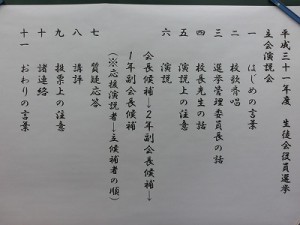 平成三十一年度 生徒会役員選挙
立会演説会
一 はじめの言葉
二 校歌斉唱
三 選挙管理委員長の話
四 校長先生の話
五 演説上の注意
六 演説
会長候補→2年副会長候補→
1年副会長候補
(※応援演説者→立候補者の順)
七 質疑応答
八 講評
九 投票上の注意
十 諸連絡
十一 おわりの言葉